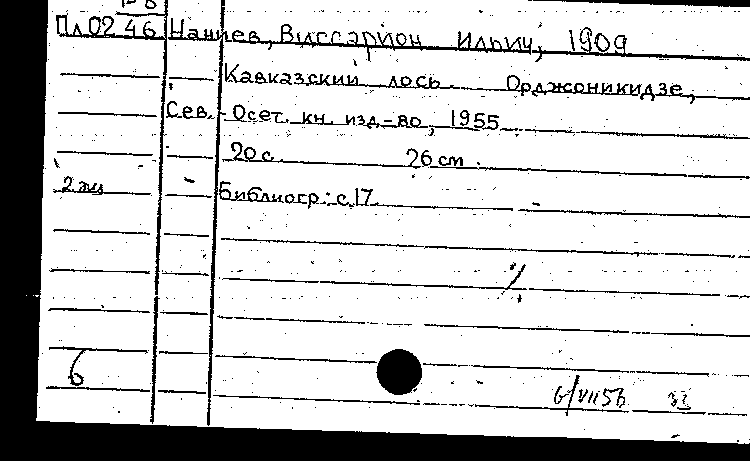 Пл02 46 Наниев, Виссарион Ильич, 1909
Кавказский лось. Орджоникидзе,
Сев.-Осет. кн. изд-во, 1955.
20 с. 26 cm.
2 экз
Библиогр.: с. 17
6
6/VII 56